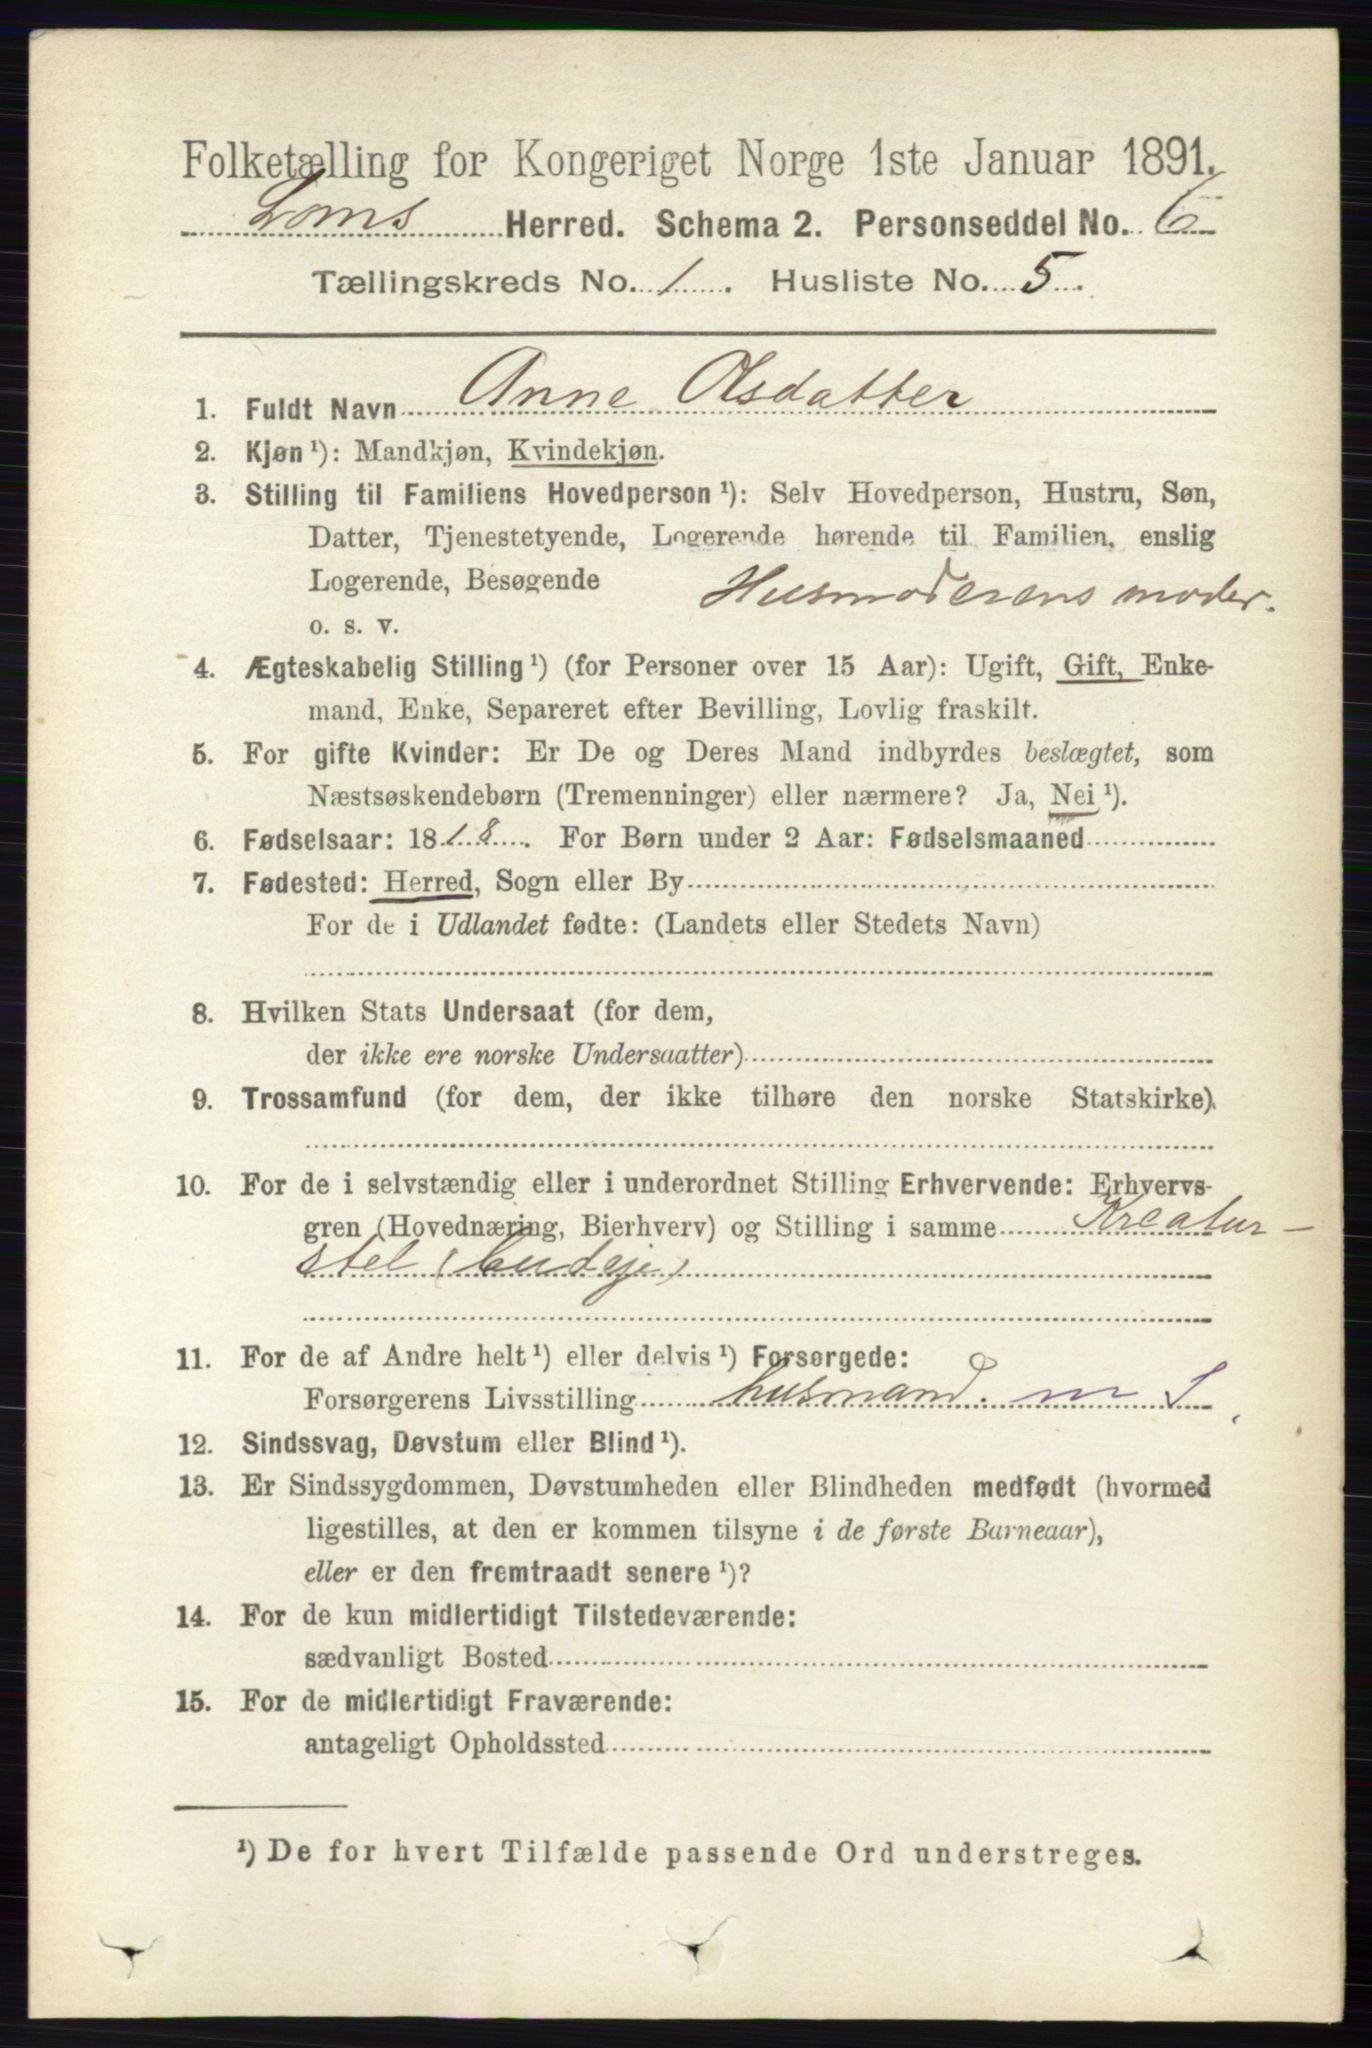 Folketælling for Kongeriget Norge 1ste Januar 1891.
Loms Herred. Schema 2. Personseddel No. 6
Tællingskreds No. 1. Husliste No. 5.
1. Fuldt Navn Anne Olsdatter
2. Kjøn ¹): Mandkjøn, Kvindekjøn.
3. Stilling til Familiens Hovedperson ¹): Selv Hovedperson, Hustru, Søn,
Datter, Tjenestetyende, Logerende hørende til Familien, enslig
Logerende, Besøgende Husmoderens moder.
o. s. v.
4. Ægteskabelig Stilling ¹) (for Personer over 15 Aar): Ugift, Gift, Enke-
mand, Enke, Separeret efter Bevilling, Lovlig fraskilt.
5. For gifte Kvinder: Er De og Deres Mand indbyrdes beslægtet, som
Næstsøskendebørn (Tremenninger) eller nærmere? Ja, Nei ¹).
6. Fødselsaar: 1818. For Børn under 2 Aar: Fødselsmaaned
7. Fødested: Herred, Sogn eller By
For de i Udlandet fødte: (Landets eller Stedets Navn)
8. Hvilken Stats Undersaat (for dem,
der ikke ere norske Undersaatter)
9. Trossamfund (for dem, der ikke tilhøre den norske Statskirke)
10. For de i selvstændig eller i underordnet Stilling Erhvervende: Erhvervs-
gren (Hovednæring, Bierhverv) og Stilling i samme Kreatur-
stel (budeje)
11. For de af Andre helt ¹) eller delvis ¹) Forsørgede:
Forsørgerens Livsstilling husmand. m S
12. Sindssvag, Døvstum eller Blind ¹).
13. Er Sindssygdommen, Døvstumheden eller Blindheden medfødt (hvormed
ligestilles, at den er kommen tilsyne i de første Barneaar),
eller er den fremtraadt senere ¹)?
14. For de kun midlertidigt Tilstedeværende:
sædvanligt Bosted
15. For de midlertidigt Fraværende:
antageligt Opholdssted
¹) De for hvert Tilfælde passende Ord understreges.